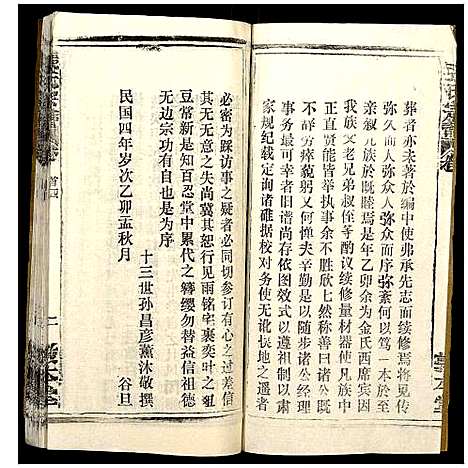 葬者亦未著於編中使弗承先志而續修焉将見传
弥久而人弥众人弥众而序弥紊何以笃一本於
亲叙九族於既睦焉是年乙卯余为金氏西席宾因
我族文老兄弟叔侄等酌议续修量材器使凡族
正直无私者举执事余不胜欣然称善曰诸公既
不辞劳瘁貌躬又何惮夫辛勤以步诸公经理
之后尘者乎旧谱尚存依图效式以遵祖制以肃
家规纪载定询诸碓据校对务使无讹
必密为踩访事之疑者必同切参订有之过差信
其无无意之失尚冀其恕一己見雨铭宇裹奕叶之
豆常新是知百忍堂中累代之簪缨勿替益信祖德
无边宗功有自也是为序
十三世孙昌彦薰沐敬撰
民国四年岁次乙卯孟秋月
谷旦